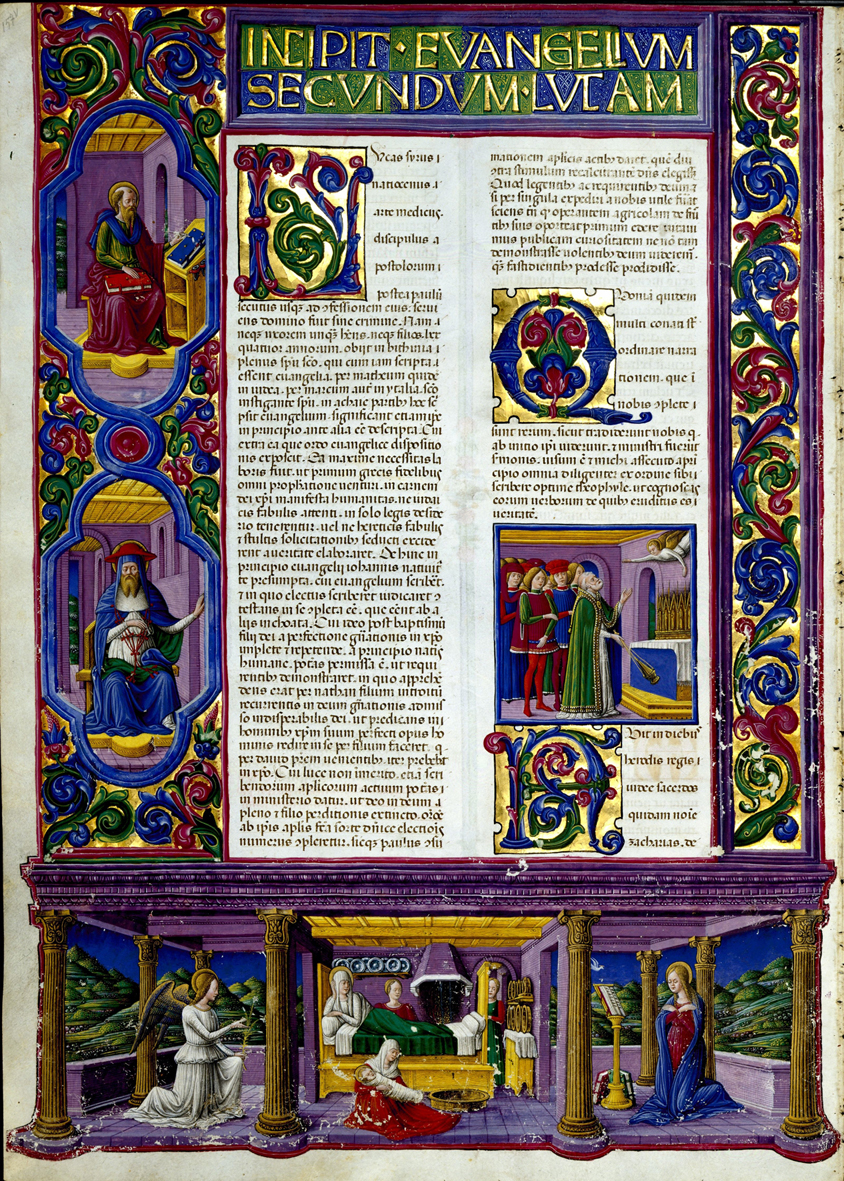 INCIPIT · EVANGELIVM
SECVNDVM · LVCAM
LVcas syrus i
natiocenus a
arte medicus
discipulus a
postolorum i
postea paulū
secutus usq; ad ɔfessionem eius, servi
ens domino fuit sine crimine. Nam
neq; uxorem unq̃ hñs, neq; filios
annorum, obijt in bithinia
plenus spũ scõ, qui cum iam scripta
essent euangelia, per matheum quidẽ
in iudea, per marcum autẽ in ytalia, scõ
instigante spũ, in achaie partibus hoc
psit euangelium, significans etiam ipse
in principio ante alia eẽ descripta. Cui
extra ea que ordo euangelice dispositio
nis exposcit. Ea maxime necessitas la
boris fuit, ut primum grecis fidelibus
omni prophatione uenturi, in carnem
dei xp̃i manifesta humanitas, ne iuda
cis fabulis attenti, in solo legis deside
rio tenerentur, uel ne hereticis fabulis
& stultis solicitationibus seducti excede
rent a ueritate elaboraret. Dehinc in
principio euangelij iohannis natiuitate
te presumpta, cui euangelium scriberet
& in quo electus scriberet iudicaret
testans in se ɔpleta eẽ, que eẽnt ab a
liis inchoata. Cui ideo post baptismũ
filij dei a perfectione gñationis in xp̃o
implete & repetende, a principio natiuitatis
humane, potestas permissa ẽ, ut requi
rentibus demonstraret, in quo apprehẽ
dens erat per nathan filium introitu
recurrentis in deum gñationis admis
so indisparabilis dei, ut predicans in
hominibus xp̃m suum perfecti opus ho
minis redire in se per filium faceret, q
per dauid prem uenientibus, iter prebebat
in xp̃o. Cui luce non imerito, etiã scri
bendorum aplicorum actuum potestas
in ministerio datur, ut deo in deum a
pleno & filio perditionis extincto, oroẽ
ab ip̃is aplis facta sorte dñice electiõis
numerus ɔpleretur, sicq; paulus ɔsu
mationem aplicis actibus daret, quẽ diu
ɔtra stimulum recalcitrantẽ dñs elegiss
Quod legentibus ac requirentibus deum &
si per singula expediri a nobis utile fuerat
sciens tñ q operantem agricolam de
tibus suis oporteat primum edere uitaui
mus publicam curiositatem ne nõ tam
demonstrasse uolentibus deum uideremur
q̃ fastidientibus prodesse prodidisse.
QVoniã quidem
multi conati sũt
ordinare narra
tionem, que i
nobis ɔplete
sunt rerum, sicut tradiderunt nobis q
ab initio ip̃i uiderunt, & ministri fuerũt
simonis, uisum ẽ & michi, assecuto a pri
cipio omnia diligenter, ex ordine tibi
scribere optime theophyle, ut cognoscas
eorum uerborum de quibus eruditus es
ueritatẽ.
FVit in diebus
herodis regis
iudee sacerdos
quidam noĩe
zacharias, de